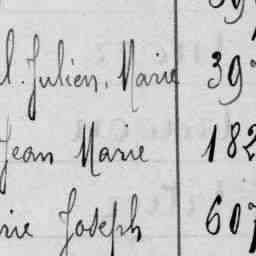 l. Julien, Marie 39
Jean Marie 182
rie Joseph 607